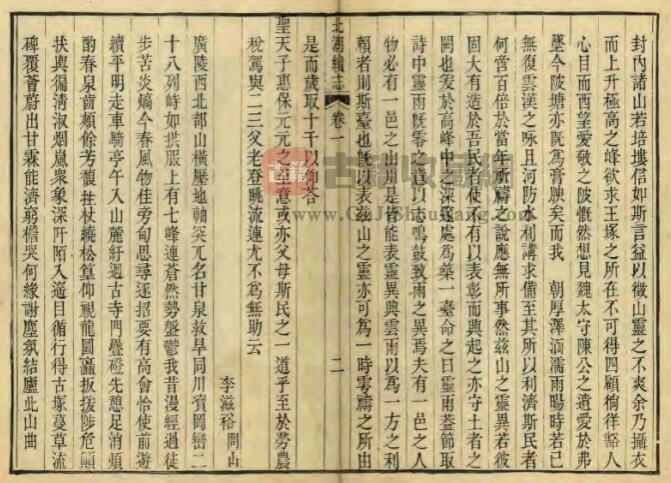 封內諸山若培塿信如斯言益以徵山靈之不爽余乃攝衣
而上升極高之峰欲求王塚之所在不可得四顧徜徉豁人
心目而西望愛敬之陂慨然想見魏太守陳公之遺愛於弗
墜今陂塘亦旣爲膏腴矣而我　朝厚澤涵濡雨暘時若已
無復雲漢之咏且河防水利講求備至其所以利濟斯民者
何啻百倍於當年所禱之說應無所事然茲山之靈異若彼
固大有造於吾民者使不有以表彰而興起之亦守土者之
闕也爰於高峰中之深邃處爲築一臺命之曰靈雨葢節取
詩中靈雨旣零之意以志鳴鼓致雨之異焉夫有一邑之人
物必有一邑之山川是皆能表靈異興雲雨以爲一方之利
賴者則斯臺也旣以表茲山之靈亦可爲一時雩禱之所由
是而歲取十千以仰答
北湖續志　卷一　二
聖天子惠保元元之至意或亦父母斯民之一道乎至於勞農
稅駕與二三父老登眺流連尤不爲無助云
李滋裕 問山
廣陵西北部山橫壓地軸突兀名甘泉救旱同川瀆岡巒二
十八列峙如拱服上有七峰連蒼然勢盤鬱我昔漫經過徒
步苦炎熇今春風物佳旁甸思尋逐招要有高會恰使前遊
續平明走車騎亭午入山麓紆迴古寺門疊磴先憩足消煩
酌春泉齒頰餘芳馥拄杖繞松篁仰視龍圖矗扳援陟危巔
扶輿徧淸淑烟嵐衆象深阡陌入遙目循行得古塚蔓草流
碑覆薈蔚出甘霖能濟窮檐哭何緣謝塵氛結廬此山曲
古籍
古籍收藏网
GuJiShuWang.com